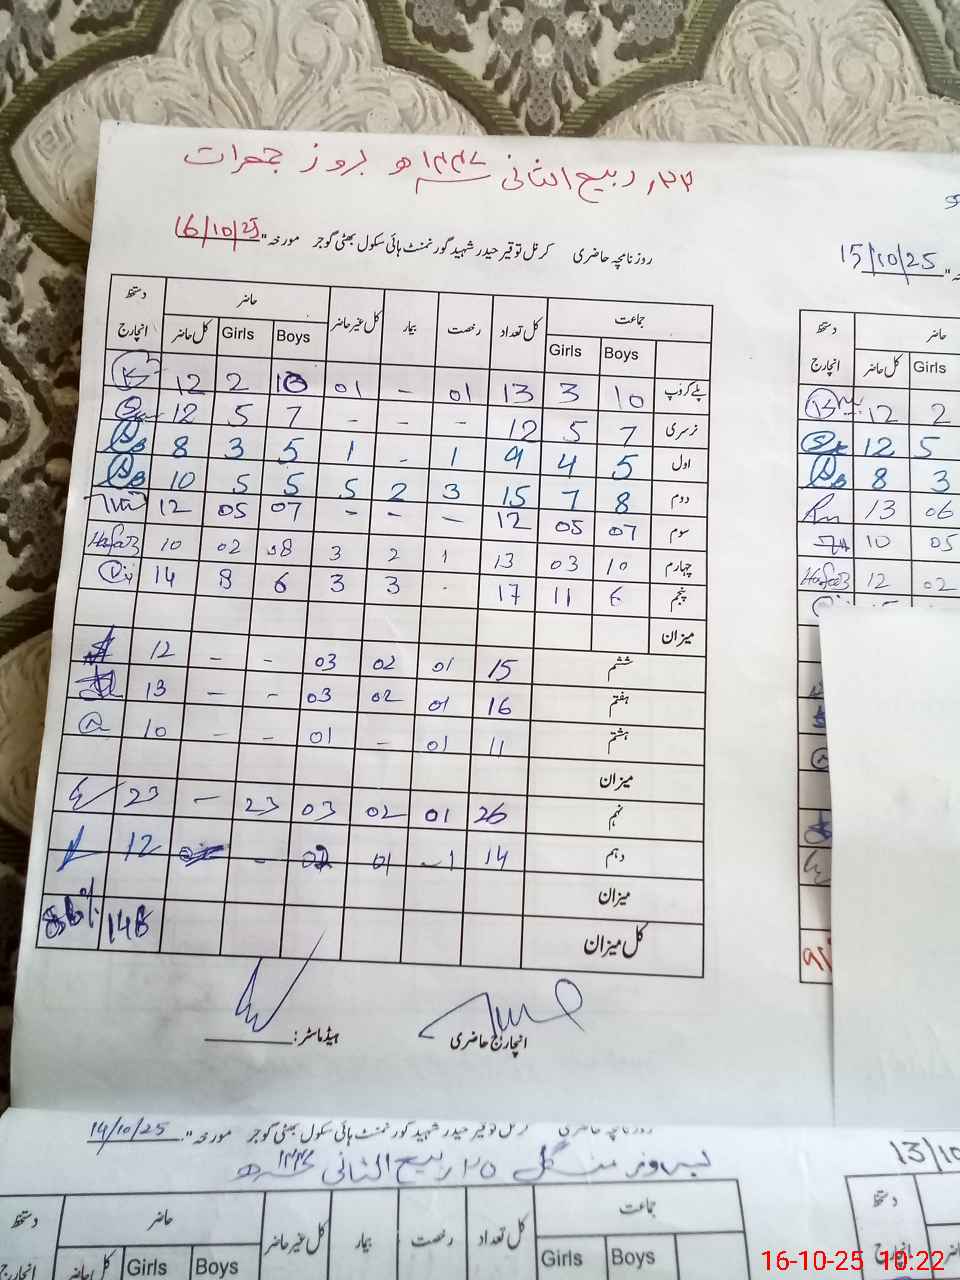 ۲۳ ربیع الثانی ۱۴۴۷ھ بروز جمعرات
روزنامچہ حاضری کرنل توقیر حیدر شہید گورنمنٹ ہائی سکول بھٹی گوجر مورخہ "16/10/25
جماعت کل تعداد رخصت بیمار کل غیر حاضر حاضر دستخط انچارج
Boys Girls Boys Girls کل حاضر
پلے گروپ 10 3 13 01 - 01 10 2 12
نرسری 7 5 12 - - - 7 5 12
اول 5 4 9 1 - 1 5 3 8
دوم 8 7 15 3 2 5 5 5 10
سوم 07 05 12 - - - 07 05 12
چہارم 10 03 13 1 2 3 08 02 10 Hafaz
پنجم 6 11 17 - 3 3 6 8 14
میزان
ششم 15 01 02 03 - - 12
ہفتم 16 01 02 03 - - 13
ہشتم 11 01 - 01 - - 10
میزان
نہم 26 01 02 03 23 - 23
دہم 14 1 01 02 - 12
میزان
کل میزان 148
انچارج حاضری ہیڈ ماسٹر:
15/10/25
حاضر دستخط انچارج
Girls کل حاضر
2 12
5 12
3 8
06 13
05 10
02 12 Hafaz
روزنامچہ حاضری کرنل توقیر حیدر شہید گورنمنٹ ہائی سکول بھٹی گوجر مورخہ "14/10/25
بروز منگل ۲۵ ربیع الثانی ۱۴۴۷ھ
جماعت کل تعداد رخصت بیمار کل غیر حاضر حاضر دستخط
Boys Girls Boys Girls کل حاضر
13/10
دستخط انچارج
16-10-25 10:22